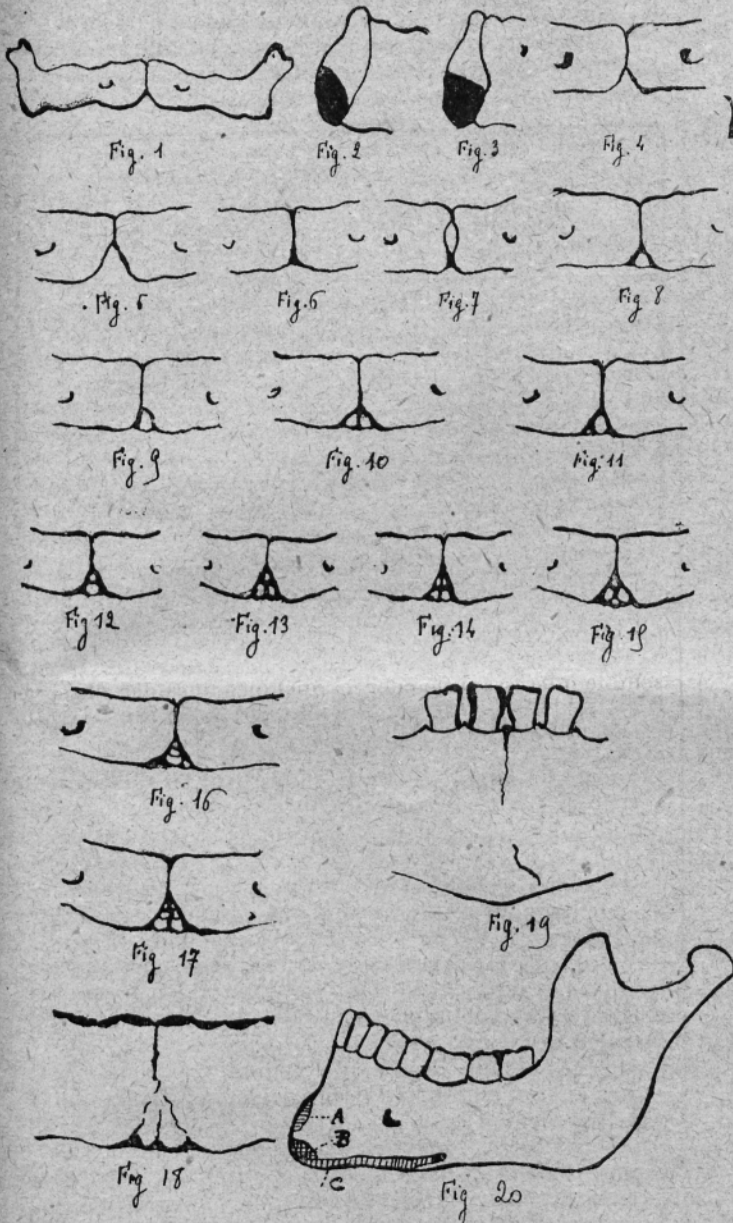 Fig. 1
Fig. 2
Fig. 3
Fig. 4
Fig. 5
Fig. 6
Fig. 7
Fig 8
Fig. 9
Fig. 10
Fig. 11
Fig 12
Fig. 13
Fig. 14
Fig. 15
Fig. 16
Fig. 19
Fig 17
A
B
C
Fig 18
Fig 20